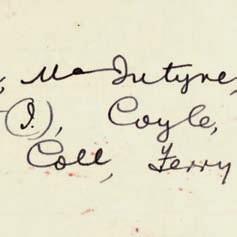 , MacIntyre,
(I.), Coyle,
Coll, Ferry